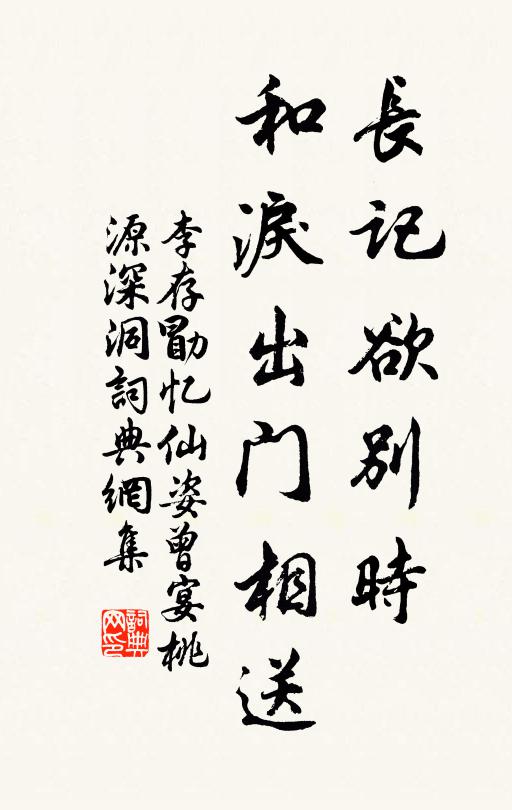 長记欲别時
和淚出门相送
李存勖忆仙姿曾宴桃
源深洞詞典網集
詞典
网印